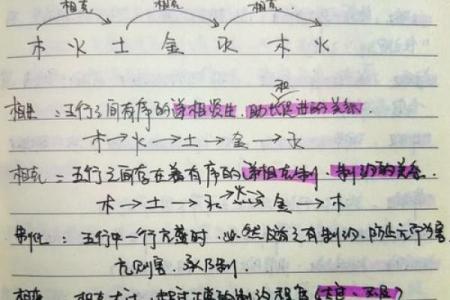 相克 相克 相克
木 火 土 金 水 木 火
相生：五行之间有序的递相资生、助长和促进的关系.
木→火→土→金→水
相克：五行之间存在着有序的递相克制、制约的关系.
木→土→水→火→金→木
制化：五行中一行亢盛时，必然随之有制约，防止亢而为害
亢则害，承乃制.